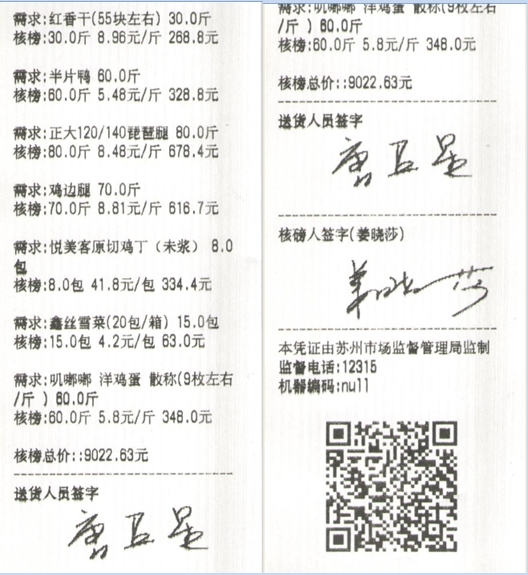 需求:红香干(55块左右) 30.0斤
核榜:30.0斤 8.96元/斤 268.8元
需求:半片鸭 60.0斤
核榜:60.0斤 5.48元/斤 328.8元
需求:正大120/140琵琶腿 80.0斤
核榜:80.0斤 8.48元/斤 678.4元
需求:鸡边腿 70.0斤
核榜:70.0斤 8.81元/斤 616.7元
需求:悦美客原切鸡丁（未浆） 8.0
包
核榜:8.0包 41.8元/包 334.4元
需求:鑫丝雪菜(20包/箱) 15.0包
核榜:15.0包 4.2元/包 63.0元
需求:叽嘟嘟 洋鸡蛋 散称(9枚左右
/斤 ) 60.0斤
核榜:60.0斤 5.8元/斤 348.0元
核榜总价::9022.63元
送货人员签字
需求:叽嘟嘟 洋鸡蛋 散称(9枚左右
/斤 ) 60.0斤
核榜:60.0斤 5.8元/斤 348.0元
核榜总价::9022.63元
送货人员签字
核磅人签字(姜晓莎)
姜晓莎
本凭证由苏州市场监督管理局监制
监督电话:12315
机器编码:null